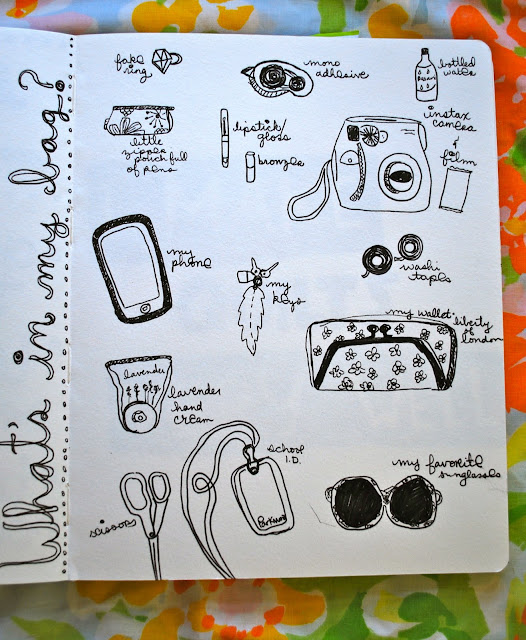 What's in my bag?
fake
ring
mono
adhesive
bottled
water
little
zipper
pouch full
of pens
lipstick/
gloss
bronzer
instax
camera
+
film
my
phone
my
keys
washi
tapes
my wallet-
liberty of
london
lavender
lavender
hand
cream
school
I.D.
scissors
my favorite
sunglasses